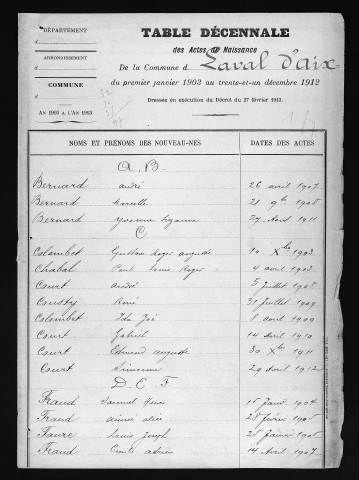 DÉPARTEMENT
ARRONDISSEMENT
COMMUNE
AN 1903 A L'AN 1913
TABLE DÉCENNALE
des Actes de Naissance
De la Commune d Laval d'aix
du premier janvier 1903 au trente-et-un décembre 1912
Dressée en exécution du Décret du 27 février 1913.
NOMS ET PRÉNOMS DES NOUVEAU-NÉS DATES DES ACTES
A. B.
Bernard André 26 avril 1907
Bernard Marcelle 21 9bre 1908
Bernard Yvonne Suzanne 27 Avril 1911
C
Colombet Gustave Roger auguste 10 Xbre 1903
Chabal Paul Louis Roger 4 avril 1903
Court André 5 Juillet 1908
Cousty René 31 Juillet 1909
Colombet Ida Zoé 8 avril 1909
Court Gabriel 14 Avril 1910
Court Edmond auguste 30 Xbre 1911
Court Simonne 29 Avril 1912
D. E. F
Fraud Samuel 15 Janv 1904
Fraud aimé 28 Février 1905
Faure Louis Joseph 25 Janvier
Fraud Emile 14 Avril 1907